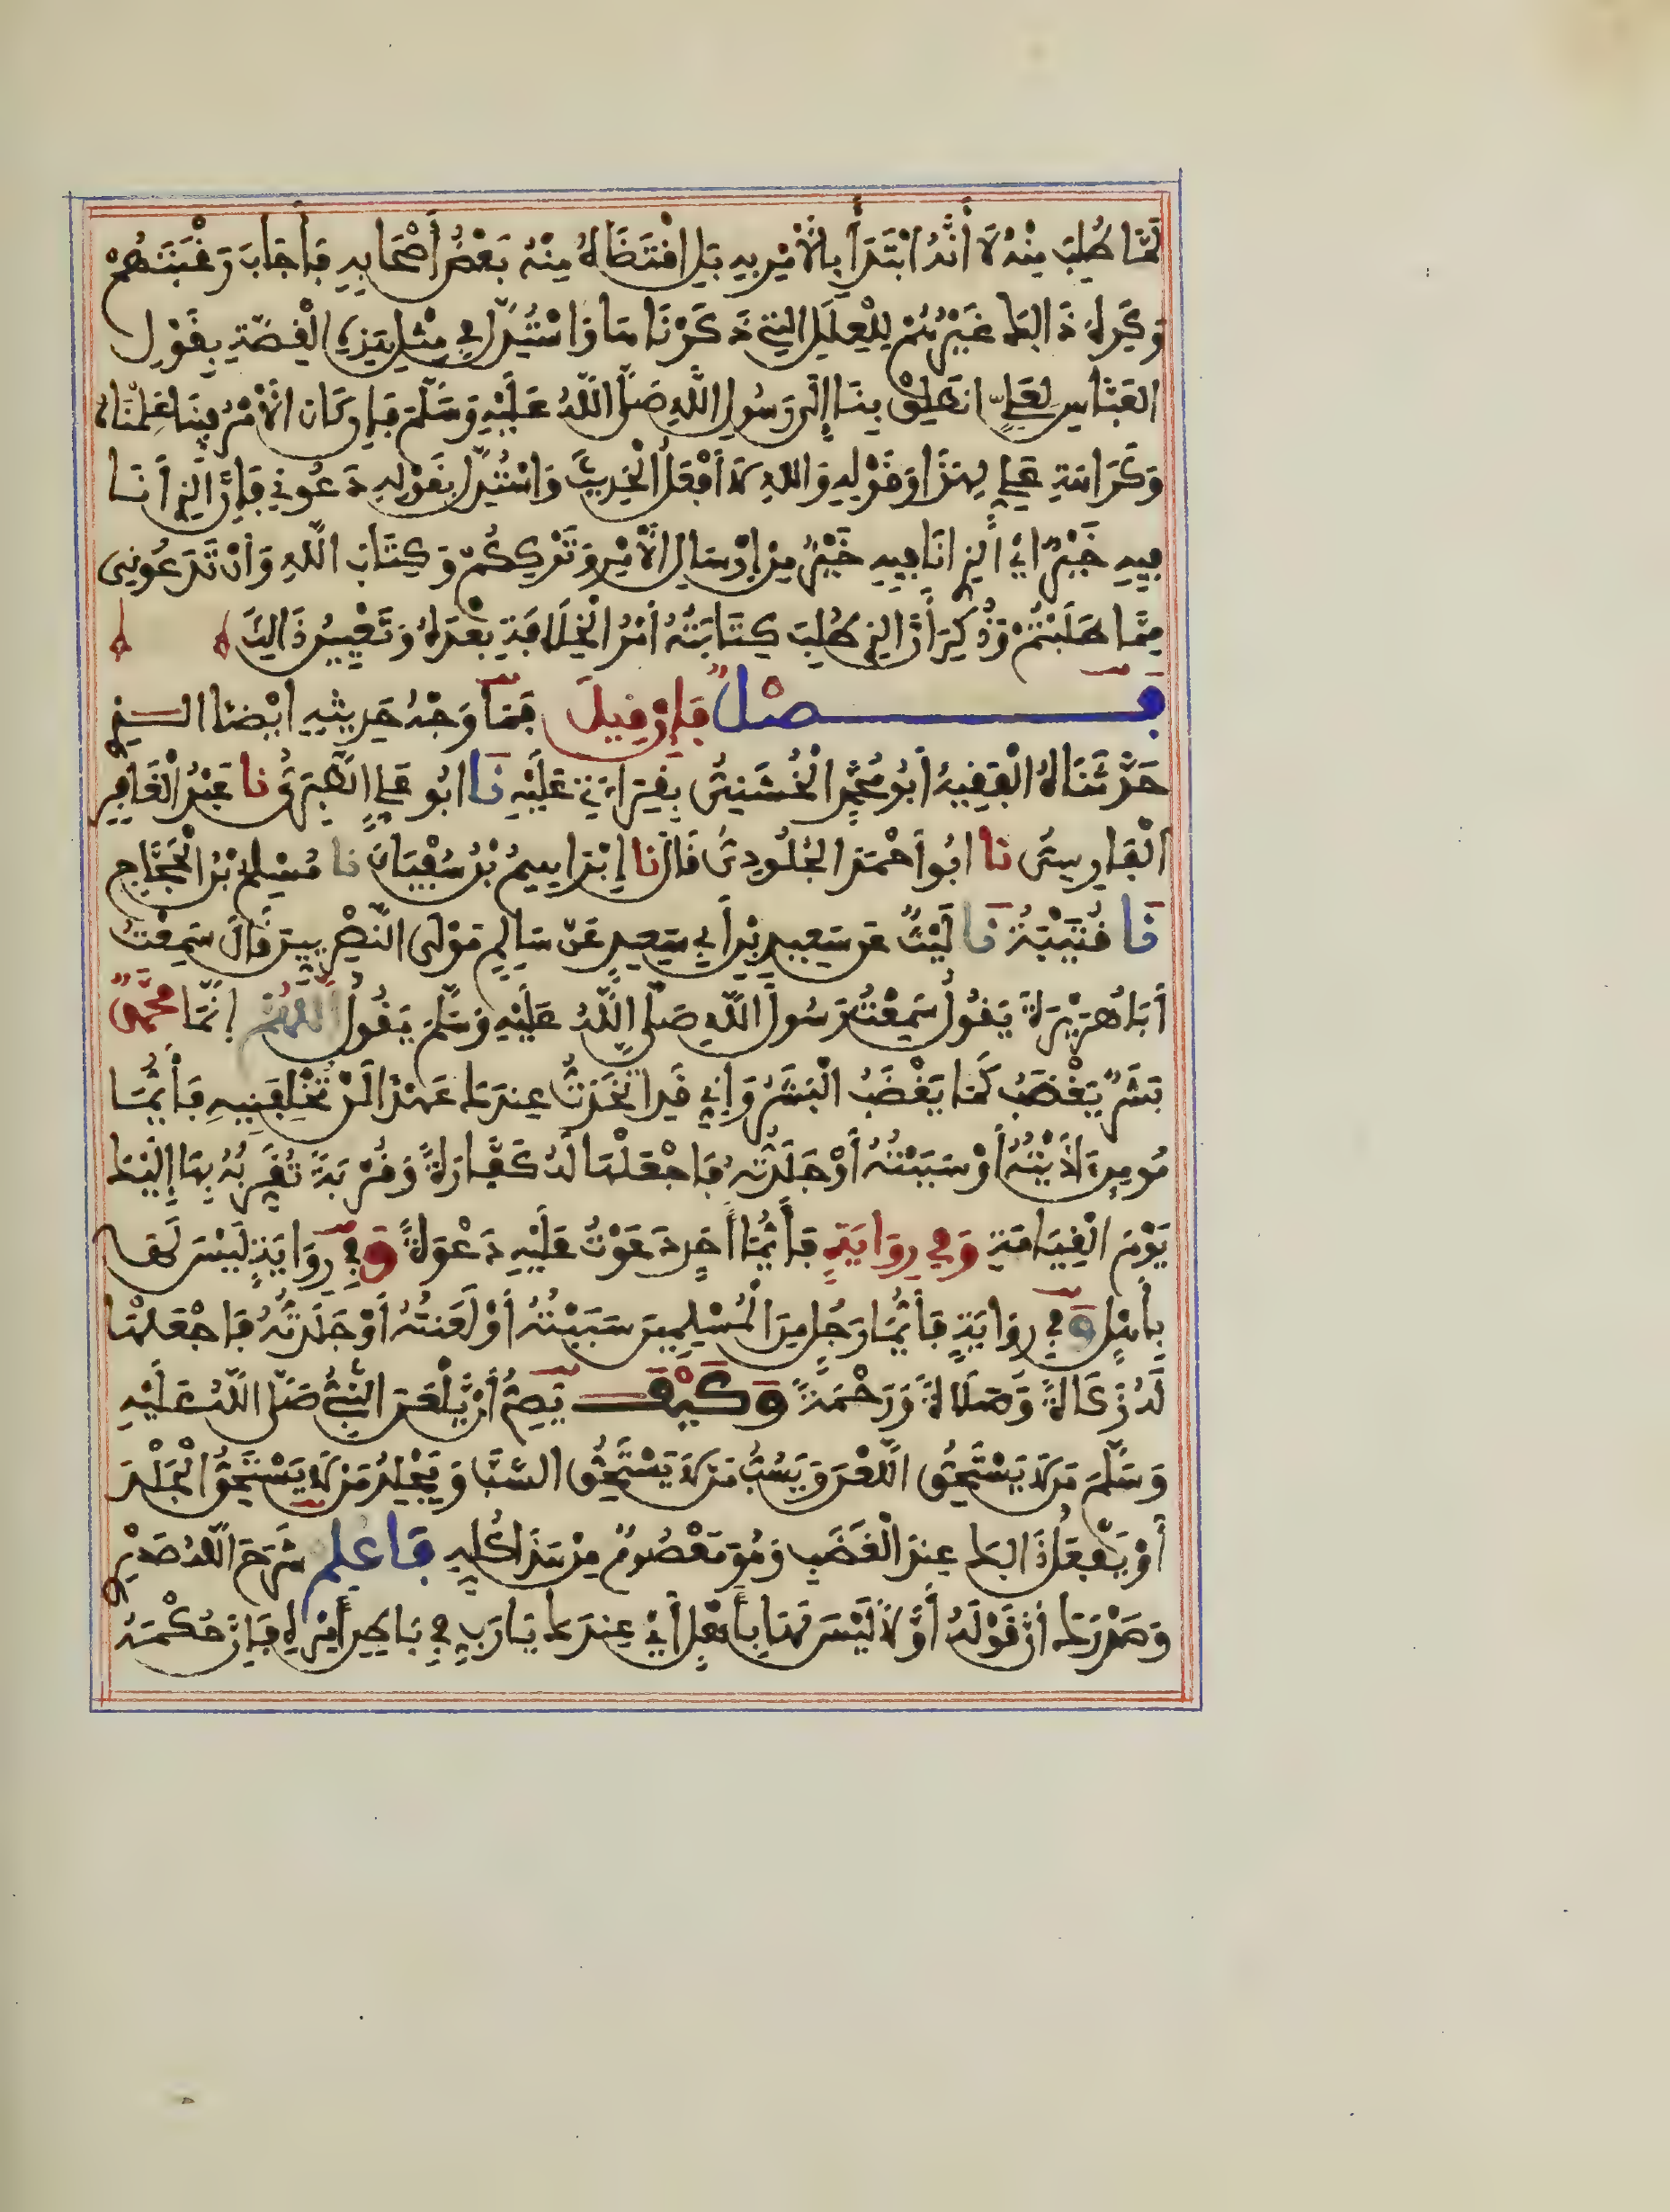 لَمَّا طُلِبَ مِنْهُ لَا أَنَّهُ ابْتَدَأَ بِالْأَمْرِ بِهِ بَلِ اقْتَضَاهُ مِنْهُ بَعْضُ أَصْحَابِهِ فَأَجَابَ رَغْبَتَهُمْ
وَكَرِهَ ذَالِكَ غَيْرُهُمْ لِلْعِلَلِ الَّتِي ذَكَرْنَاهَا وَاسْتُدِلَّ فِي مِثْلِ هَذِهِ الْقِصَّةِ بِقَوْلِ
الْعَبَّاسِ لِعَلِيٍّ انْطَلِقْ بِنَا إِلَى رَسُولِ اللَّهِ صَلَّى اللَّهُ عَلَيْهِ وَسَلَّمَ فَإِن كَانَ الْأَمْرُ فِينَا عَلِمْنَاهُ
وَكَرَاهَةِ عَلِيٍّ لِهَذَا وَقَوْلِهِ وَاللَّهِ لَا أَفْعَلُ الْحَدِيثَ وَاسْتُدِلَّ بِقَوْلِهِ دَعُونِي فَإِنَّ الَّذِي أَنَا
فِيهِ خَيْرٌ أَيْ الَّذِي أَنَا فِيهِ خَيْرٌ مِنْ إِرْسَالِ الْأَمْرِ وَتَرْكِكُمْ وَكِتَابَ اللَّهِ وَأَنْ تَدَعُونِي
مِمَّا طَلَبْتُمْ وَذُكِرَ أَنَّ الَّذِي طُلِبَ كِتَابَتُهُ أَمْرُ الْخِلَافَةِ بَعْدَهُ وَتَعْيِينُ ذَالِكَ
فَصْلٌ فَإِنْ قِيلَ فَمَا وَجْهُ حَدِيثِهِ أَيْضًا الَّذِي
حَدَّثَنَاهُ الْفَقِيهُ أَبُو مُحَمَّدٍ الْخُشَنِيُّ بِقِرَاءَتِي عَلَيْهِ نَا أَبُو عَلِيٍّ الطَّبَرِيُّ نا عَبْدُ الْغَافِرِ
الْفَارِسِيُّ نا أَبُو أَحْمَدَ الْجُلُودِيُّ قَالَ نا إِبْرَاهِيمُ بْنُ سُفْيَانَ نا مُسْلِمُ بْنُ الْحَجَّاجِ
نَا قُتَيْبَةُ نَا لَيْثٌ عَن سَعِيدِ بْنِ أَبِي سَعِيدٍ عَنْ سَالِمٍ مَوْلَى النَّصْرِيِّينَ قَالَ سَمِعْتُ
أَبَا هُرَيْرَةَ يَقُولُ سَمِعْتُ رَسُولَ اللَّهِ صَلَّى اللَّهُ عَلَيْهِ وَسَلَّمَ يَقُولُ اللَّهُمَّ إِنَّمَا مُحَمَّدٌ
بَشَرٌ يَغْضَبُ كَمَا يَغْضَبُ الْبَشَرُ وَإِنِّي قَدِ اتَّخَذْتُ عِندَكَ عَهْدًا لَنْ تُخْلِفَنِيهِ فَأَيُّمَا
مُومِنٍ آذَيْتُهُ أَوْ سَبَبْتُهُ أَوْ جَلَدْتُهُ فَاجْعَلْهَا لَهُ كَفَّارَةً وَقُرْبَةً تُقَرِّبُهُ بِهَا إِلَيْكَ
يَوْمَ الْقِيَامَةِ وَفِي رِوَايَةٍ فَأَيُّمَا أَحَدٍ دَعَوْتُ عَلَيْهِ دَعْوَةً وَفِي رِوَايَةٍ لَيْسَ لَهَا
بِأَهْلٍ وَفِي رِوَايَةٍ فَأَيُّمَا رَجُلٍ مِنَ الْمُسْلِمِينَ سَبَبْتُهُ أَوْ لَعَنْتُهُ أَوْ جَلَدْتُهُ فَاجْعَلْهَا
لَهُ زَكَاةً وَصَلَاةً وَرَحْمَةً وَكَيْفَ يَصِحُّ أَنْ يَلْعَنَ النَّبِيُّ صَلَّى اللَّهُ عَلَيْهِ
وَسَلَّمَ مَن لَا يَسْتَحِقُّ اللَّعْنَ وَيَسُبُّ مَن لَا يَسْتَحِقُّ السَّبَّ وَيَجْلِدُ مَن لَا يَسْتَحِقُّ الْجَلْدَ
أَوْ يَفْعَلُ ذَالِكَ عِندَ الْغَضَبِ وَهُوَ مَعْصُومٌ مِنْ هَذَا كُلِّهِ فَاعْلَمْ شَرَحَ اللَّهُ صَدْرِي
وَصَدْرَكَ أَنَّ قَوْلَهُ أَوَّلًا لَيْسَ لَهَا بِأَهْلٍ أَيْ عِندَكَ يَا رَبِّ فِي بَاطِنِ أَمْرِهِ فَإِنَّ حُكْمَهُ